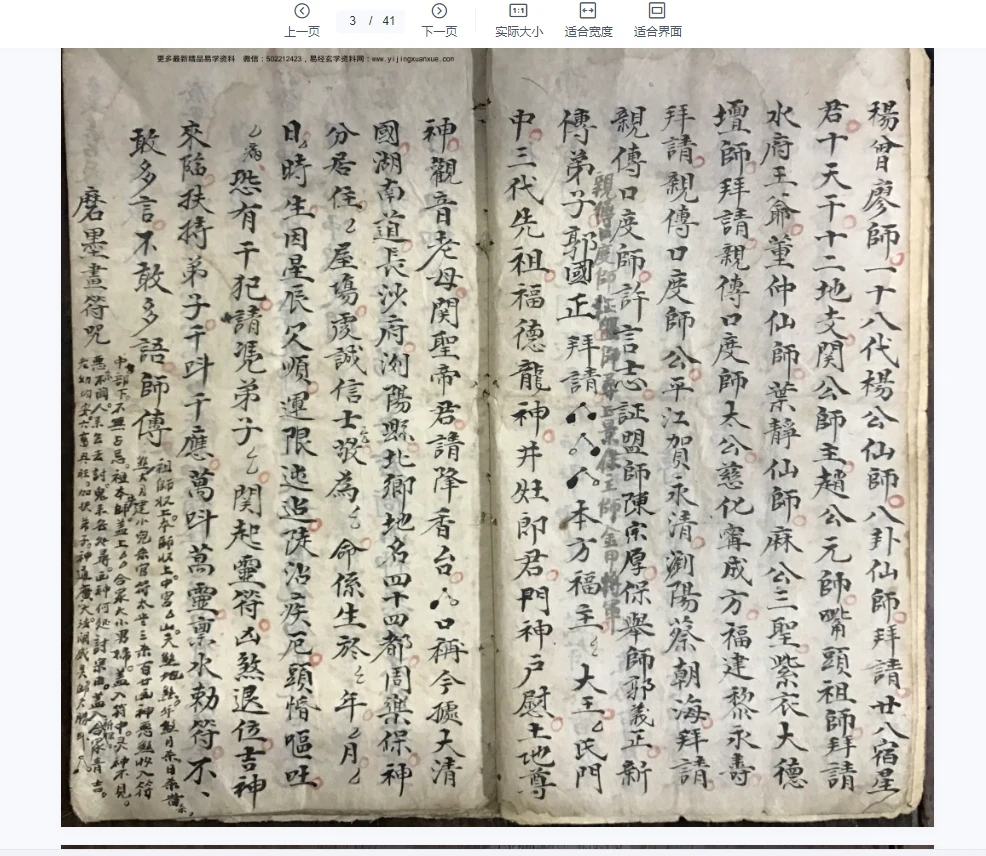 上一页
3 / 41
下一页
实际大小
适合宽度
适合界面
更多最新精品易学资料 微信：502212423，易经玄学资料网：www.yijingxuanxue.com
楊曾廖師一十八代楊公仙師八卦仙師拜請廿八宿星
君十天干十二地支関公師主趙公元師嘴頭祖師拜請
水府王爺董仲仙師葉靜仙師麻公三聖紫衣大德
壇師拜請親傳口度師太公慈化寗成方福建黎永壽
拜請親傳口度師公平江賀永清瀏陽蔡朝海拜請
親傳口度師許言志証盟師陳宗厚保舉師郭義正新
傳弟子郭國正拜請本方福主大王氏門
中三代先祖福德龍神井灶郎君門神戸慰土地尊
神觀音老母関聖帝君請降香台口稱今據大清
國湖南道長沙府瀏陽縣北鄉地名四十四都周樂保神
分居住屋場虔誠信士敬為命係生於年月
日時生因星辰欠順運限迍邅陡沾疾厄頭惛嘔吐
病恐有干犯請凴弟子関起靈符凶煞退位吉神
來臨扶持弟子千呌千應萬呌萬靈禀水勅符不
敢多言不敢多語師傳
磨墨畫符咒